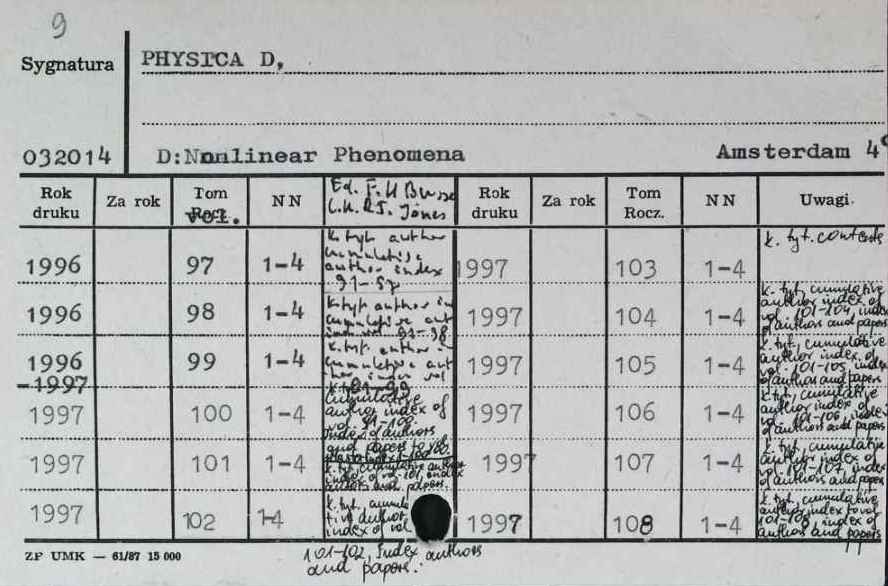 9
Sygnatura PHYSICA D,
032014 D:Nonlinear Phenomena Amsterdam 4°
Rok druku Za rok Tom Rocz. vol. NN Ed. F.H Busse C.K.R.T. Jones Rok druku Za rok Tom Rocz. NN Uwagi.
1996 97 1-4 k. tyt. author cumulative author index 91-97 1997 103 1-4 k. tyt. contents
1996 98 1-4 k. tyt. author in cumulative aut 91-98 1997 104 1-4 k. tyt, cumulative author index of vol. 101-104, index of authors and papers
1996 -1997 99 1-4 k. tyt. author cumulative aut hor index vol 91-99 1997 105 1-4 k. tyt, cumulative author index of vol. 101-105, index of authors and papers
1997 100 1-4 k. tyt. cumulative author index of vol 91-100. index of authors and papers to vol. 1997 106 1-4 k. tyt, cumulative author index of vol. 101-106, index of authors and papers
1997 101 1-4 k. tyt, cumulative author index of vol. 101, index authors and papers. 1997 107 1-4 k. tyt, cumulative author index of vol 101-107, index of authors and papers
1997 102 1-4 k. tyt, cumula tive author index of vol 1997 108 1-4 k. tyt, cumulative author index to vol 101-108, index of authors and papers
ZP UMK — 61/87 15 000 101-102, Index authors
and papers.